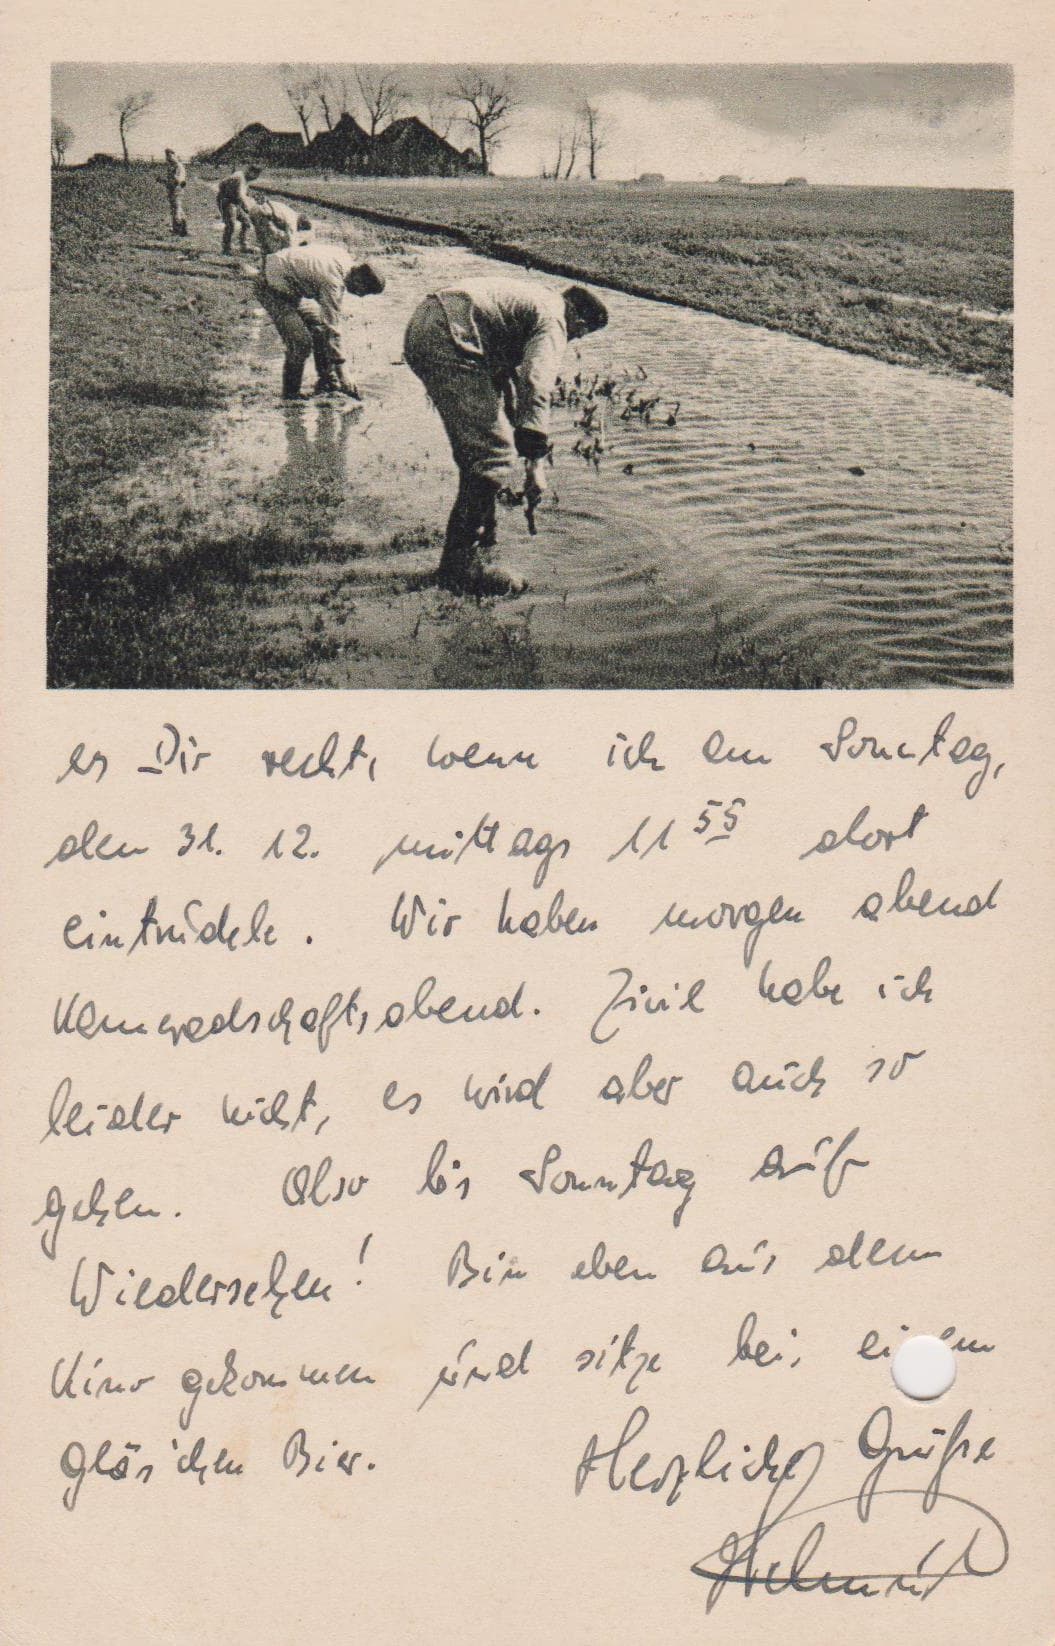 es Dir recht, wenn ich am Sonntag,
den 31. 12. mittags 11 55 dort
eintrudele. Wir haben morgen abend
Kameradschaftsabend. Zivil habe ich
leider nicht, es wird aber auch so
gehen. Also bis Sonntag auf
Wiedersehen! Bin eben aus dem
Kino gekommen und sitze bei einem
Gläschen Bier. Herzliche Grüße
Helmut